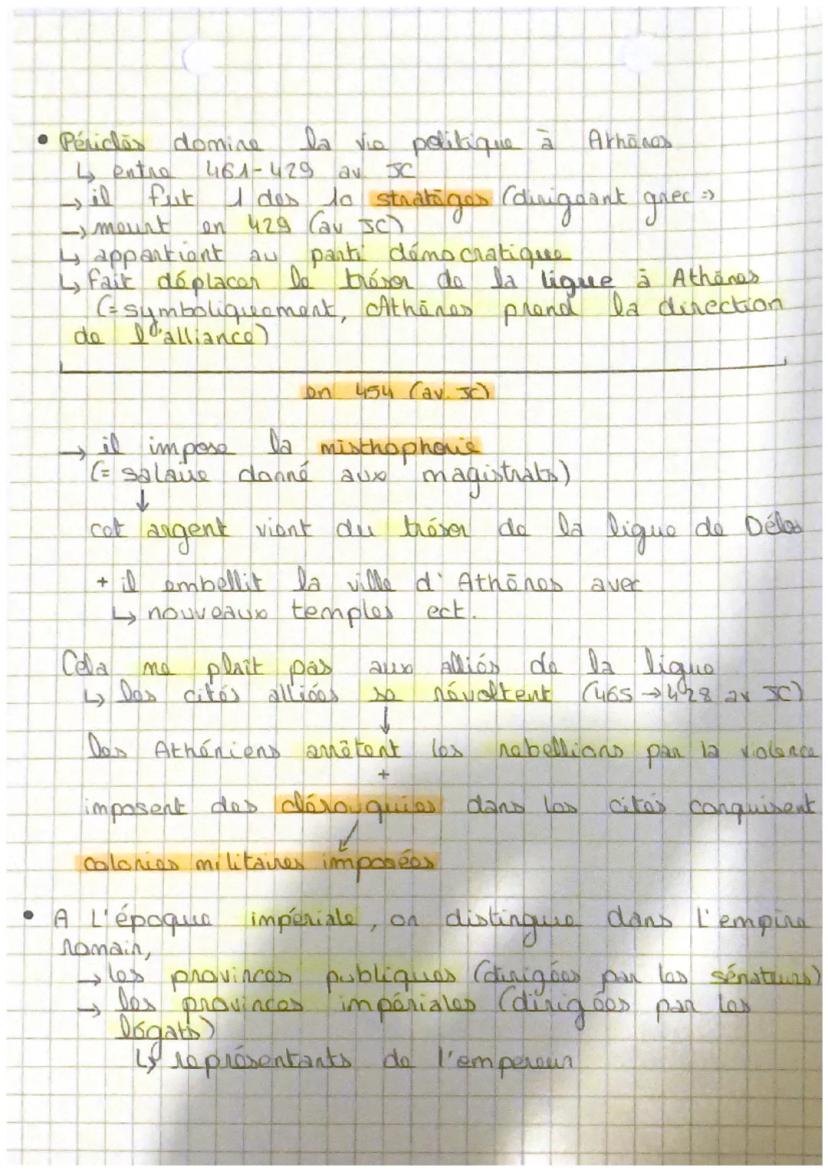 • Périclès domine la vie politique à Athènes
↳ entre 461-429 av JC
→ il fut 1 des 10 stratèges (dirigeant grec =>
→ meurt en 429 (av JC)
↳ appartient au parti démocratique
↳ fait déplacer le trésor de la ligue à Athènes
(= symboliquement, Athènes prend la direction
de l'alliance)
en 454 (av. JC)
→ il impose la misthophorie
(= salaire donné aux magistrats)
↓
cet argent vient du trésor de la ligue de Délos
+ il embellit la ville d'Athènes avec
↳ nouveaux temples ect.
Cela ne plaît pas aux alliés de la ligue
↳ les cités alliées se révoltent (465 → 428 av JC)
↓
les Athéniens arrêtent les rebellions par la violence
+
imposent des clérouquies dans les cités conquisent
↙
colonies militaires imposées
• A l'époque impériale, on distingue dans l'empire
romain,
→ les provinces publiques (dirigées par les sénateurs)
→ les provinces impériales (dirigées par les
légats)
↳ représentants de l'empereur